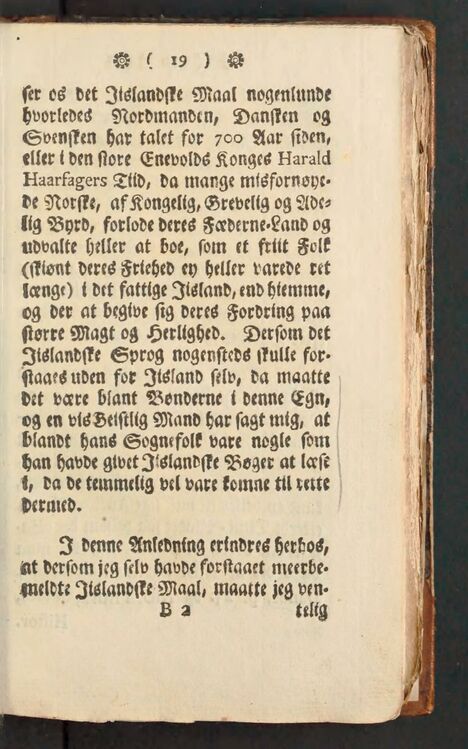 ( 19 )
ser os det Jislandske Maal nogenlunde
hvorledes Nordmanden, Dansken og
Svensken har talet for 700 Aar siden,
eller i den store Enevolds Konges Harald
Haarfagers Tiid, da mange misfornøye-
de Norske, af Kongelig, Grevelig og Ade-
lig Byrd, forlode deres Fæderne-Land og
udvalte heller at boe, som et friit Folk
(skiønt deres Friehed ey heller varede ret
længe) i det fattige Jisland, end hiemme,
og der at begive sig deres Fordring paa
større Magt og Herlighed. Dersom det
Jislandske Sprog nogensteds skulle for-
staaes uden for Jisland selv, da maatte
det være blant Bønderne i denne Egn,
og en vis Geistlig Mand har sagt mig, at
blandt hans Sognefolk vare nogle som
han havde givet Jislandske Bøger at læse
i, da de temmelig vel vare komne til rette
dermed.
J denne Anledning erindres herhos,
at dersom jeg selv havde forstaaet meerbe-
meldte Jislandske Maal, maatte jeg ven-
B 2 telig